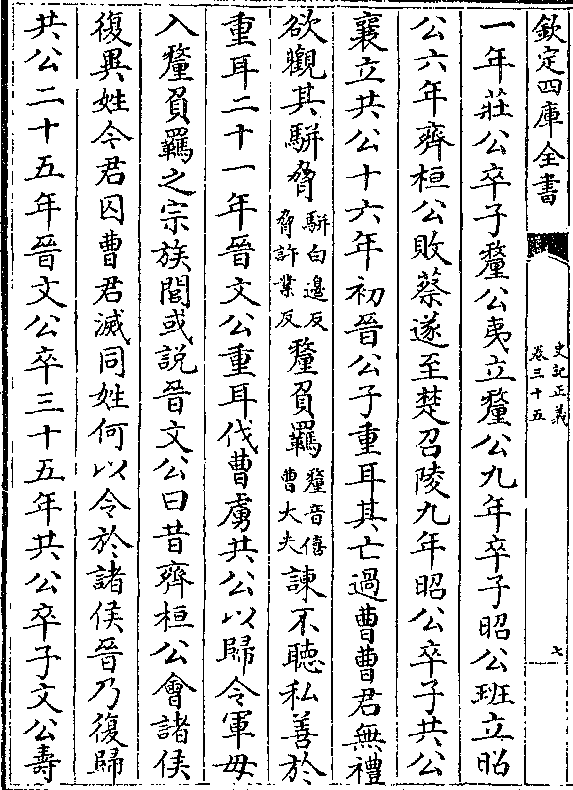 欽定四庫全書
史記正義
卷三十五
七
一年莊公卒子釐公夷立釐公九年卒子昭公班立昭
公六年齊桓公敗蔡遂至楚召陵九年昭公卒子共公
襄立共公十六年初晉公子重耳其亡過曹曹君無禮
欲觀其駢脅駢白邊反脅許業反釐負羈釐音僖曹大夫諫不聽私善於
重耳二十一年晉文公重耳伐曹虜共公以歸令軍毋
入釐負羈之宗族閭或說晉文公曰昔齊桓公會諸侯
復異姓今君囚曹君滅同姓何以令於諸侯晉乃復歸
共公二十五年晉文公卒三十五年共公卒子文公壽